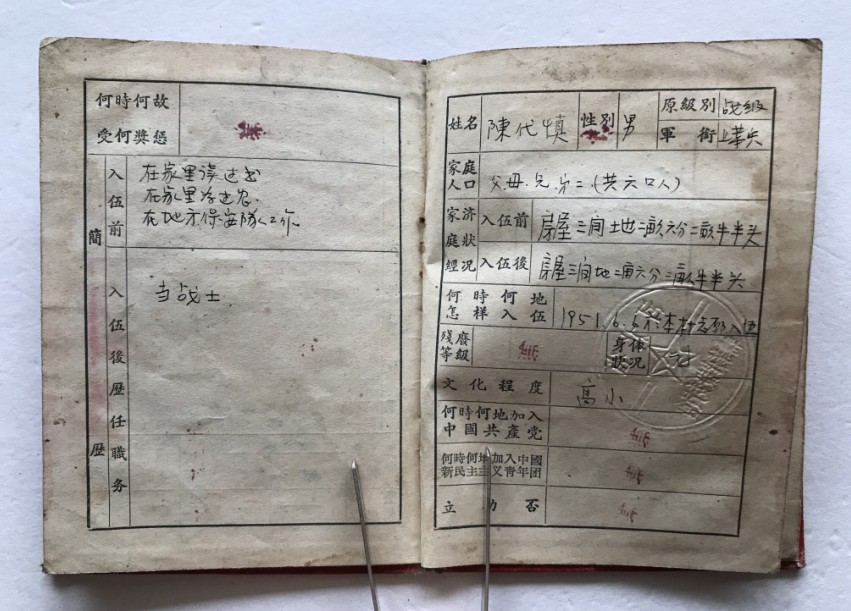 何時何故
受何獎惩
無
簡
歴
入伍前
在家里读过书
在家里
在地方保安隊工作
入伍後歴任職务
当战士
姓名
陳代慎
性别
男
原級别
战级
軍衔
上等兵
家庭
人口
父.母.兄.弟二(共六口人)
家庭經济狀况
入伍前
房屋三间土地二亩六分二 牛半头
入伍後
房屋三间地二亩六分 牛半头
何時何地
怎样入伍
1951.6. 本村 入伍
殘廢
等級
無
身体
狀况
文化程度
高小
何時何地加入
中國共產党
無
何時何地加入中國
新民主主义青年团
無
立功否
無